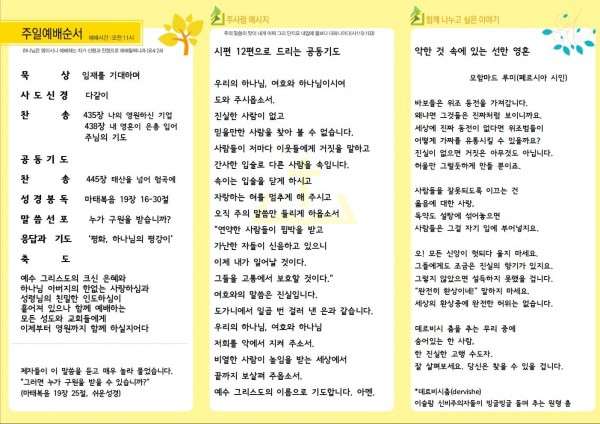 주일예배순서 예배시간 : 오전 11시
하나님은 영이시니 예배하는 자가 신령과 진정으로 예배할찌니라 (요4:24)
묵 상 임재를 기대하며
사도신경 다같이
찬 송 435장 나의 영원하신 기업
438장 내 영혼이 은총 입어
주님의 기도
공동기도
찬 송 445장 태산을 넘어 험곡에
성경봉독 마태복음 19장 16-30절
말씀선포 누가 구원을 받습니까?
응답과 기도 '평화, 하나님의 평강이'
축 도
예수 그리스도의 크신 은혜와
하나님 아버지의 한없는 사랑하심과
성령님의 친밀한 인도하심이
흩어져 있으나 함께 예배하는
모든 성도와 교회들에게
이제부터 영원까지 함께 하실지어다
제자들이 이 말씀을 듣고 매우 놀라 물었습니다.
"그러면 누가 구원을 받을 수 있습니까?"
(마태복음 19장 25절, 쉬운성경)
주사랑 메시지
주의 말씀의 맛이 내게 어찌 그리 단지요 내입에 꿀보다 더하니이다(시119:103)
시편 12편으로 드리는 공동기도
우리의 하나님, 여호와 하나님이시여
도와 주시옵소서.
진실한 사람이 없고
믿을만한 사람을 찾아 볼 수 없습니다.
사람들이 저마다 이웃들에게 거짓을 말하고
간사한 입술로 다른 사람을 속입니다.
속이는 입술을 닫게 하시고
자랑하는 혀를 멈추게 해 주시고
오직 주의 말씀만 들리게 하옵소서
"연약한 사람들이 핍박을 받고
가난한 자들이 신음하고 있으니
이제 내가 일어날 것이다.
그들을 고통에서 보호할 것이다."
여호와의 말씀은 진실입니다.
도가니에서 일곱 번 걸러 낸 은과 같습니다.
우리의 하나님, 여호와 하나님
저희를 악에서 지켜 주소서.
비열한 사람이 높임을 받는 세상에서
끝까지 보살펴 주옵소서.
예수 그리스도의 이름으로 기도합니다. 아멘.
함께 나누고 싶은 이야기
악한 것 속에 있는 선한 영혼
모함마드 루미(페르시아 시인)
바보들은 위조 동전을 가져갑니다.
왜냐면 그것들은 진짜처럼 보이니까요.
세상에 진짜 동전이 없다면 위조범들이
어떻게 가짜를 유통시킬 수 있을까요?
진실이 없으면 거짓은 아무것도 아닙니다.
허울만 그럴듯하게 만들 뿐이죠.
사람들을 잘못되도록 이끄는 건
옳음에 대한 사랑,
독약도 설탕에 섞어놓으면
사람들은 그걸 자기 입에 부어넣지요.
오! 모든 신앙이 헛되다 울지 마세요.
그들에게도 조금은 진실의 향기가 있지요.
그렇지 않았으면 설득하지 못했을 겁니다.
"완전히 환상이네!" 말하지 마세요.
세상의 환상중에 완전한 허위는 없습니다.
데르비시 춤을 추는 무리 중에
숨어있는 한 사람,
한 진실한 고행 수도자.
잘 살펴보세요. 당신은 찾을 수 있을 겁니다.
*데르비시춤(dervishe)
이슬람 신비주의자들이 빙글빙글 돌며 추는 원형 춤